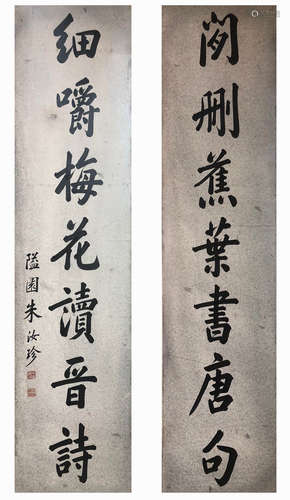 閒删蕉葉書唐句
細嚼梅花讀晋詩
隘園朱汝珍